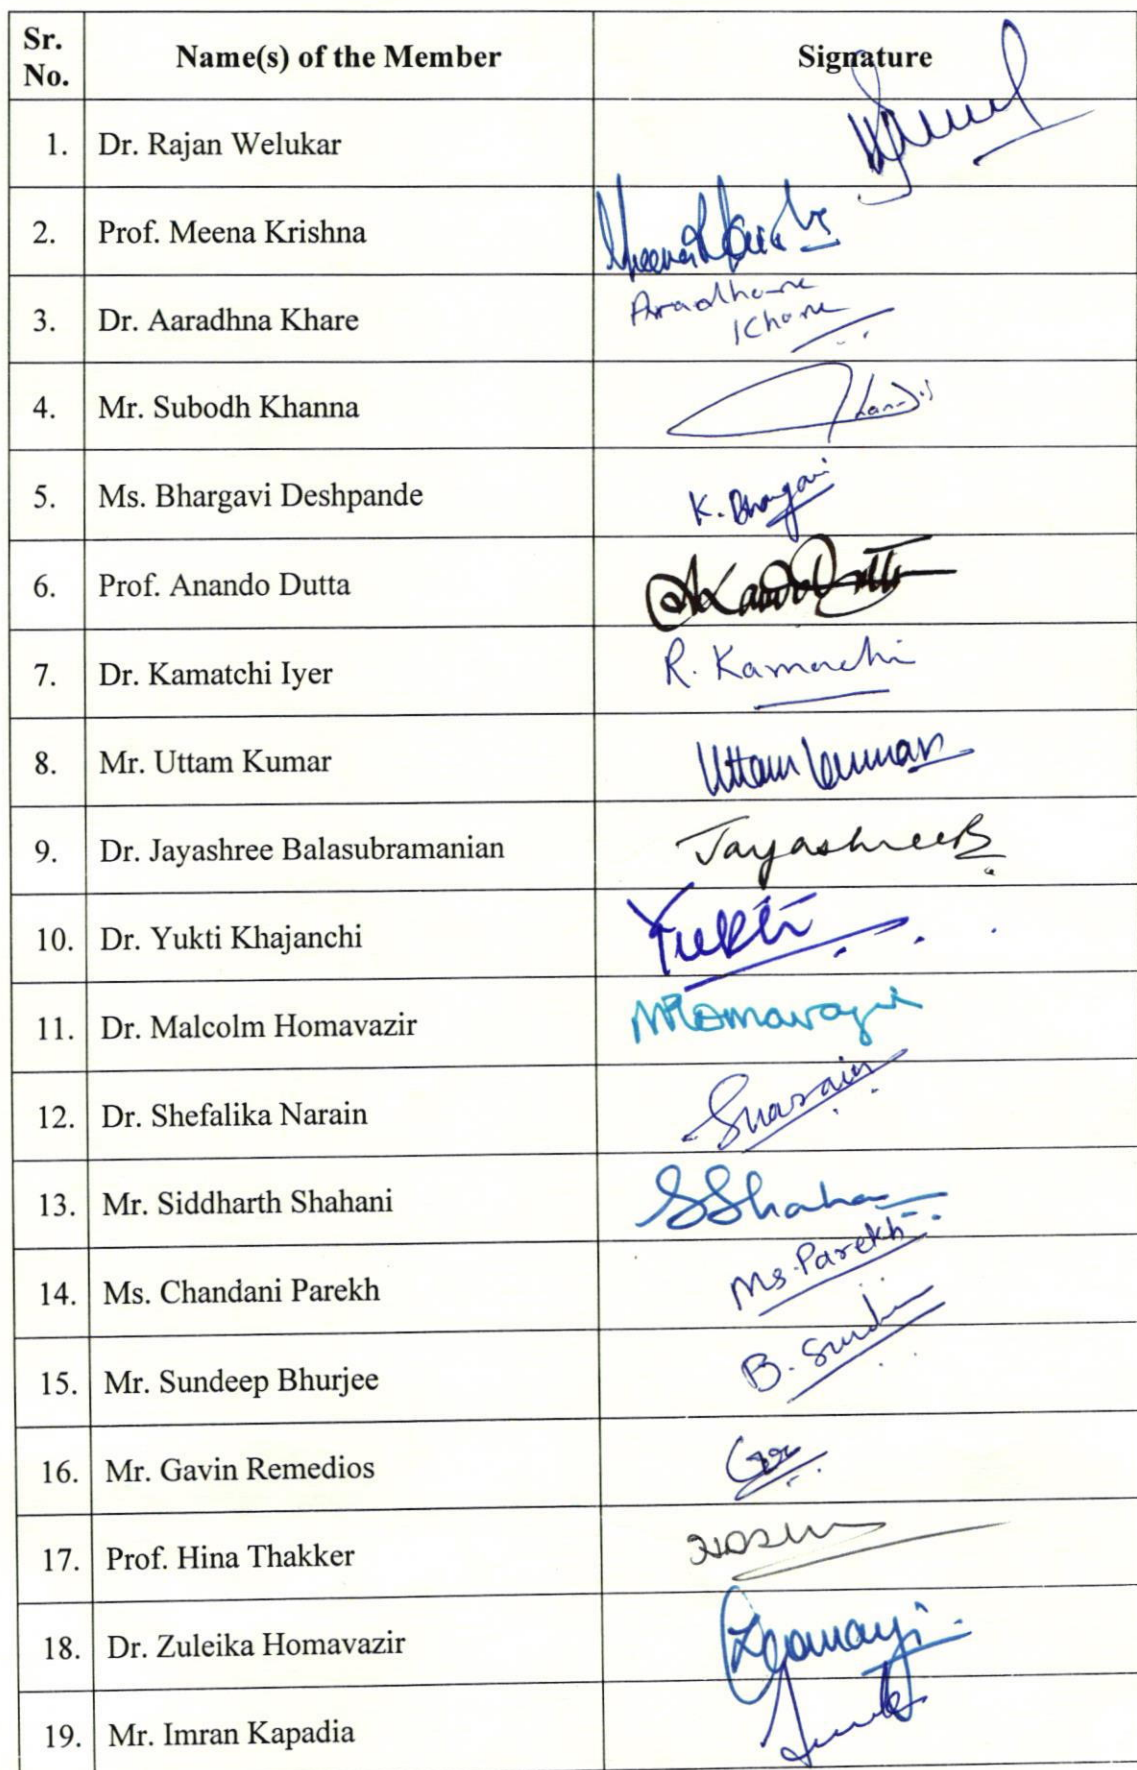 Sr. No. Name(s) of the Member Signature
1. Dr. Rajan Welukar
2. Prof. Meena Krishna
3. Dr. Aaradhna Khare Aradhana Khare
4. Mr. Subodh Khanna
5. Ms. Bhargavi Deshpande
6. Prof. Anando Dutta
7. Dr. Kamatchi Iyer R. Kamachi
8. Mr. Uttam Kumar Uttam Kumar
9. Dr. Jayashree Balasubramanian Jayashree B
10. Dr. Yukti Khajanchi Yukti
11. Dr. Malcolm Homavazir
12. Dr. Shefalika Narain Snarain
13. Mr. Siddharth Shahani
14. Ms. Chandani Parekh Ms. Parekh
15. Mr. Sundeep Bhurjee
16. Mr. Gavin Remedios
17. Prof. Hina Thakker
18. Dr. Zuleika Homavazir
19. Mr. Imran Kapadia